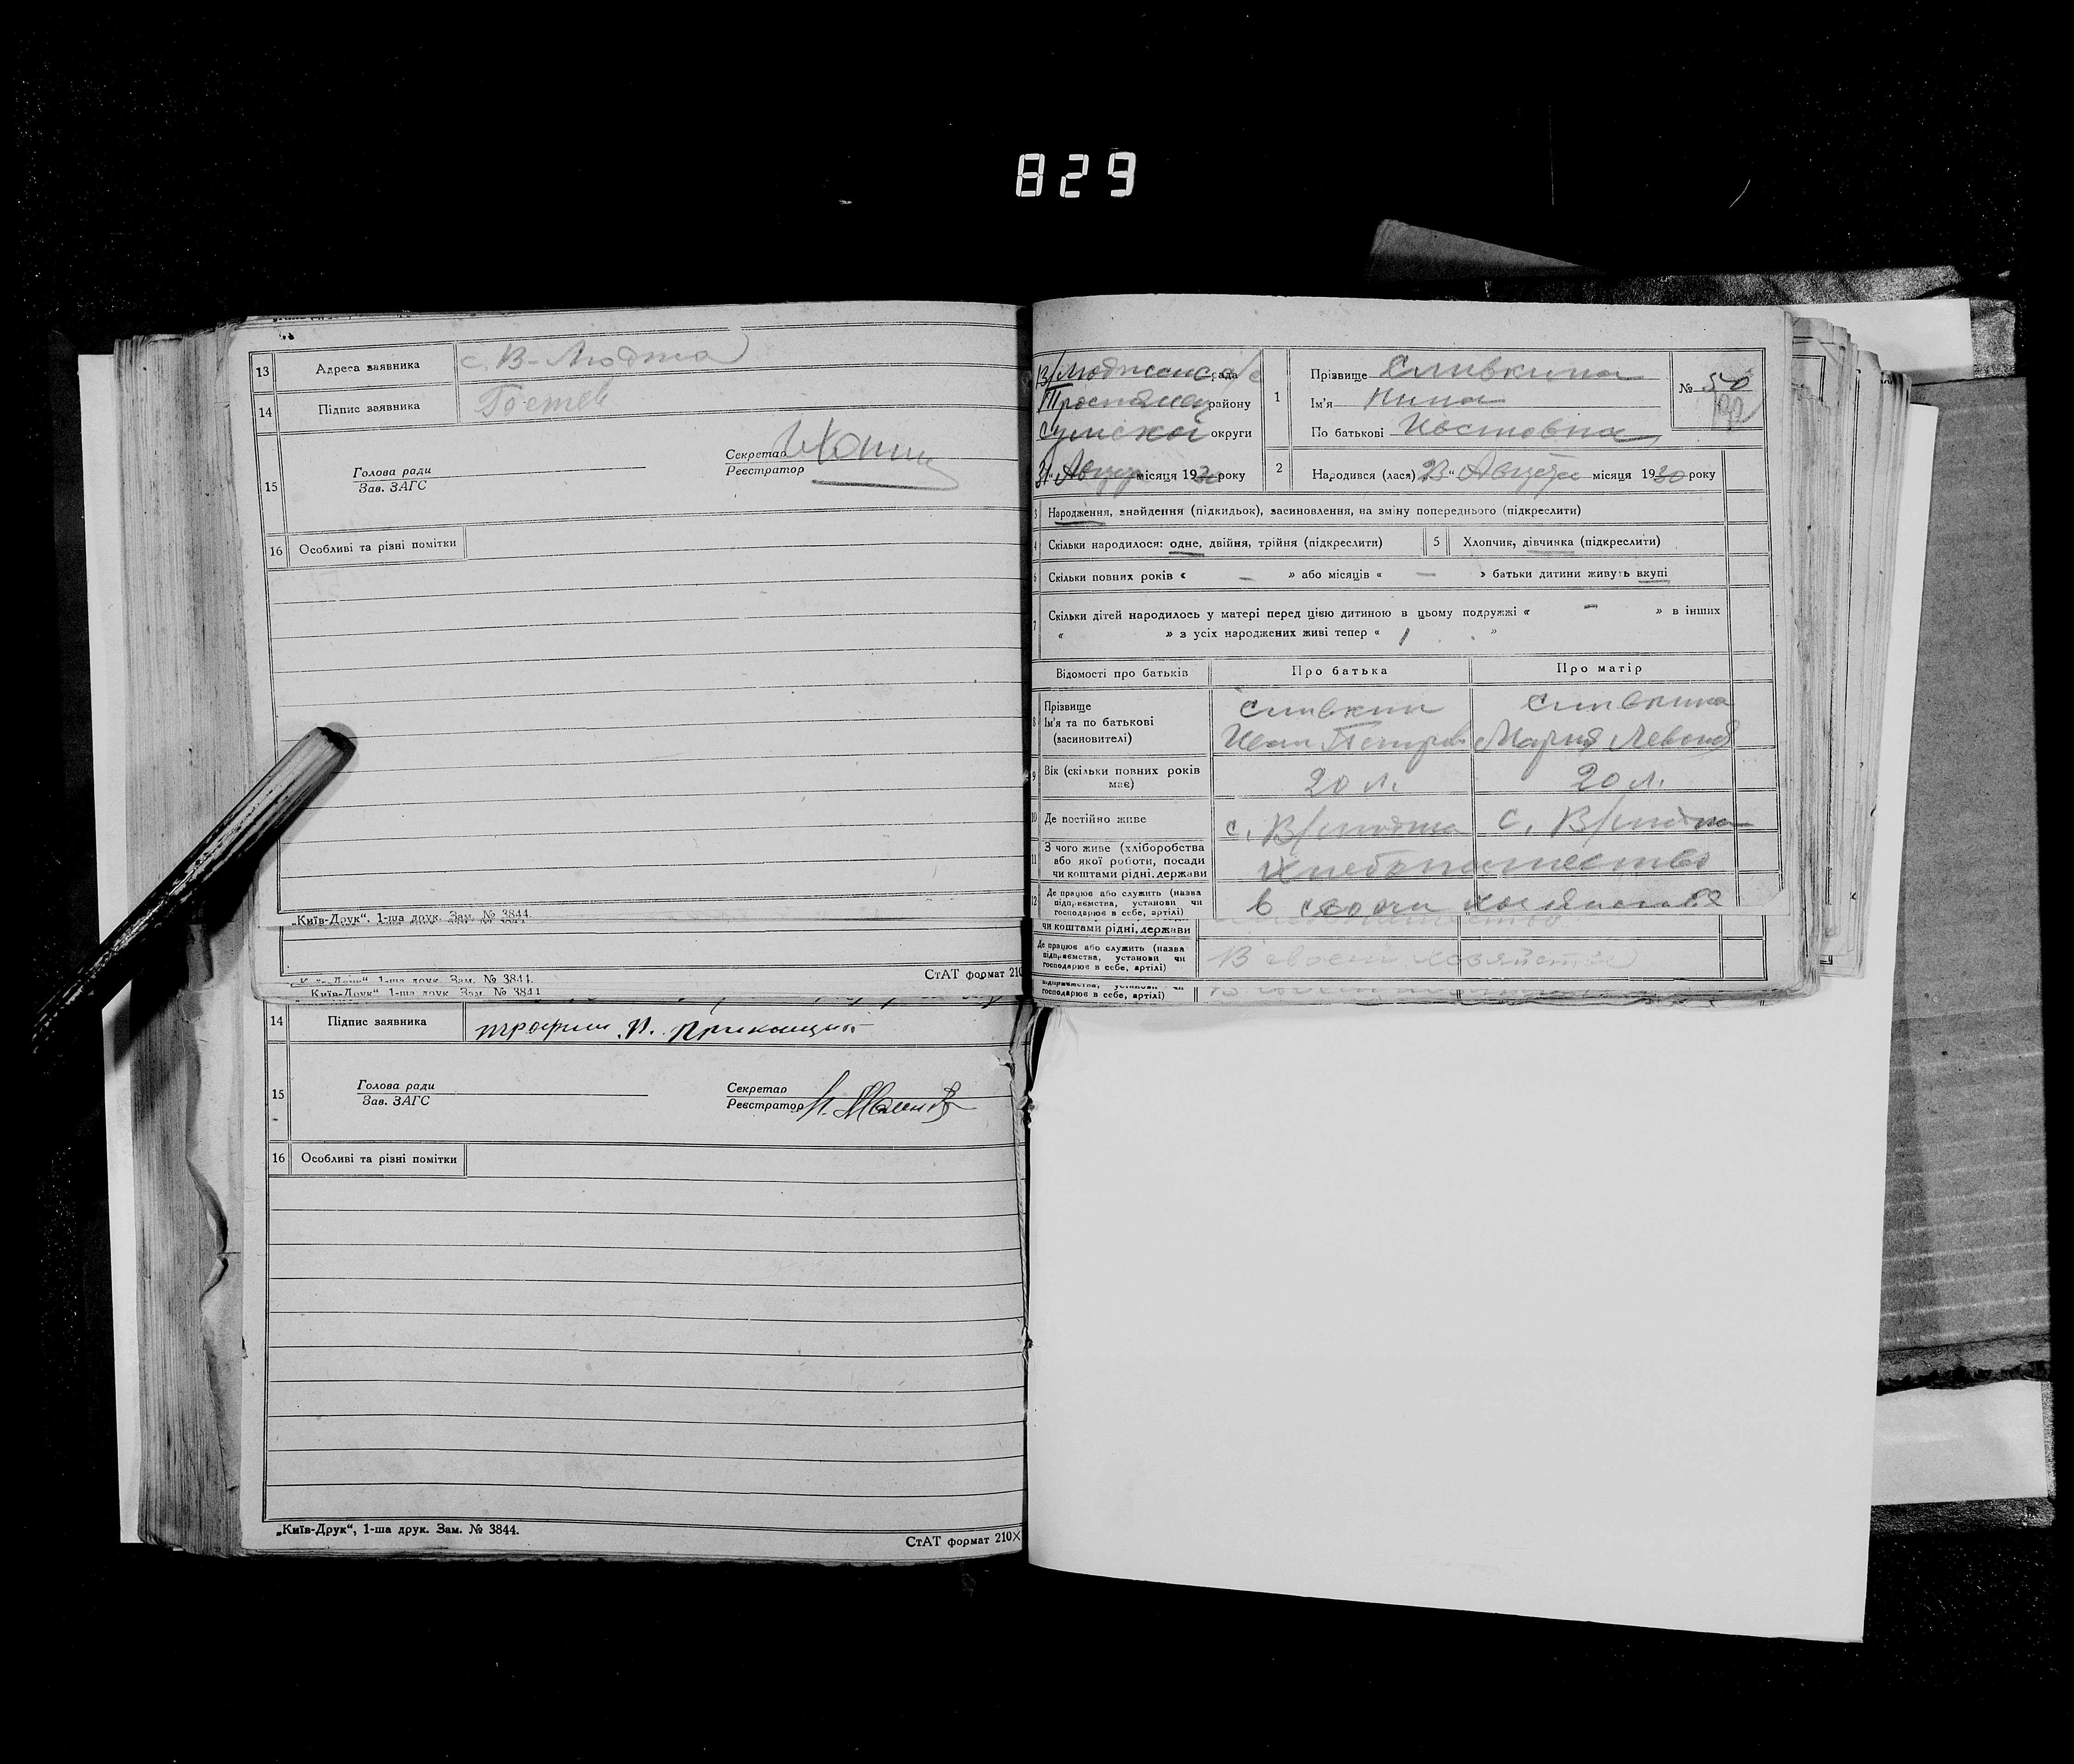 829
13 Адреса заявника с. В-Люджа
14 Підпис заявника Гостев
15 Голова ради
Зав. ЗАГС
Секретар
Реєстратор
16 Особливі та різні помітки
„Київ-Друк“. 1-ша друк. Зам. № 3844.
СтАТ формат 210
14 Підпис заявника
15 Голова ради
Зав. ЗАГС
Секретар
Реєстратор
16 Особливі та різні помітки
„Київ-Друк“, 1-ша друк. Зам. № 3844.
СтАТ формат 210×
В/Люджанс рада
Тростянец району
Сумской округи
31 “ Август місяця 1930 року
1 Прізвище Сливкина
Ім'я Нина
По батькові Ивановна
№ 50
2 Народився (лася) 23 “ Августа місяця 1930 року
3 Народження, знайдення (підкидьок), засиновлення, на зміну попереднього (підкреслити)
4 Скільки народилося: одне, двійня, трійня (підкреслити)
5 Хлопчик, дівчинка (підкреслити)
6 Скільки повних років « — » або місяців « — » батьки дитини живуть вкупі
7 Скільки дітей народилось у матері перед цією дитиною в цьому подружжі « — » в інших
« » з усіх народжених живі тепер « 1 »
Відомості про батьків Про батька Про матір
8 Прізвище
Ім'я та по батькові
(засиновителі)
Сливкин Сливкина
Иван Петров Мария
9 Вік (скільки повних років
має)
20 л. 20 л.
10 Де постійно живе с. В/Люджа с. В/Люджа
11 З чого живе (хліборобства
або якої роботи, посади
чи коштами рідні, держави
Хлебопашество
12 Де працює або служить (назва
підприємства, установи чи
господарює в себе, артілі)
в своем хозяйстве
чи коштами рідні, держави
Де працює або служить (назва
підприємства, установи чи
господарює в себе, артілі)
В своем хозяйстве
господарює в себе, артілі)